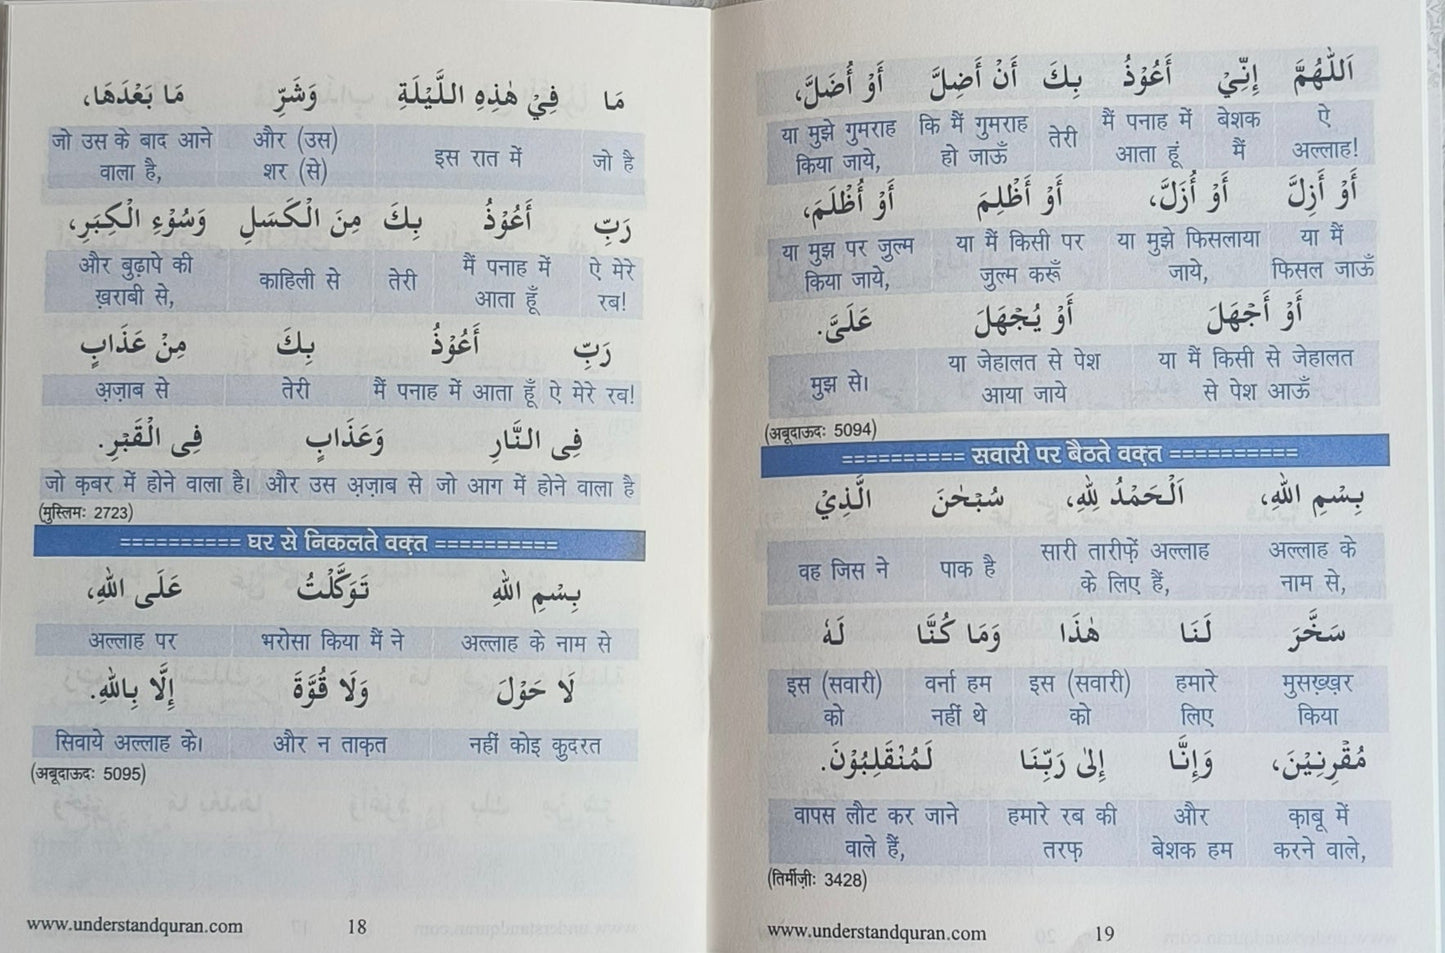 مَا فِيْ هٰذِهِ اللَّيْلَةِ وَشَرِّ مَا بَعْدَهَا،
जो है इस रात में और (उस) शर (से) जो उस के बाद आने वाला है,
رَبِّ أَعُوْذُ بِكَ مِنَ الْكَسَلِ وَسُوْءِ الْكِبَرِ،
ऐ मेरे रब! मैं पनाह में आता हूँ तेरी काहिली से और बुढ़ापे की ख़राबी से,
رَبِّ أَعُوْذُ بِكَ مِنْ عَذَابٍ
ऐ मेरे रब! मैं पनाह में आता हूँ तेरी अज़ाब से
فِى النَّارِ وَعَذَابٍ فِى الْقَبْرِ.
जो आग में होने वाला है और उस अज़ाब से जो क़बर में होने वाला है।
(मुस्लिमः 2723)
========== घर से निकलते वक़्त ==========
بِسْمِ اللّٰهِ تَوَكَّلْتُ عَلَى اللّٰهِ،
अल्लाह के नाम से भरोसा किया मैं ने अल्लाह पर
لَا حَوْلَ وَلَا قُوَّةَ إِلَّا بِاللّٰهِ.
नहीं कोइ कुदरत और न ताक़त सिवाये अल्लाह के।
(अबूदाऊदः 5095)
www.understandquran.com 18
اَللّٰهُمَّ إِنِّيْ أَعُوْذُ بِكَ أَنْ أَضِلَّ أَوْ أُضَلَّ،
ऐ अल्लाह! बेशक मैं मैं पनाह में आता हूं तेरी कि मैं गुमराह हो जाऊँ या मुझे गुमराह किया जाये,
أَوْ أَزِلَّ أَوْ أُزَلَّ، أَوْ أَظْلِمَ أَوْ أُظْلَمَ،
या मैं फिसल जाऊँ या मुझे फिसलाया जाये, या मैं किसी पर जुल्म करूँ या मुझ पर जुल्म किया जाये,
أَوْ أَجْهَلَ أَوْ يُجْهَلَ عَلَىَّ.
या मैं किसी से जेहालत से पेश आऊँ या जेहालत से पेश आया जाये मुझ से।
(अबूदाऊदः 5094)
========== सवारी पर बैठते वक़्त ==========
بِسْمِ اللّٰهِ، اَلْحَمْدُ لِلّٰهِ، سُبْحٰنَ الَّذِيْ
अल्लाह के नाम से, सारी तारीफ़ें अल्लाह के लिए हैं, पाक है वह जिस ने
سَخَّرَ لَنَا هٰذَا وَمَا كُنَّا لَهٗ
मुसख़्ख़र किया हमारे लिए इस (सवारी) को वर्ना हम नहीं थे इस (सवारी) को
مُقْرِنِيْنَ، وَإِنَّا إِلىٰ رَبِّنَا لَمُنْقَلِبُوْنَ.
क़ाबू में करने वाले, और बेशक हम हमारे रब की तरफ़ वापस लौट कर जाने वाले हैं,
(तिर्मीज़ीः 3428)
www.understandquran.com 19